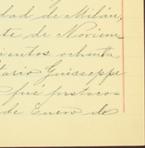 dad de Milán,
te de Noviem
cientos ochenta
tario Guiseppe
fué protoco
de Enero de